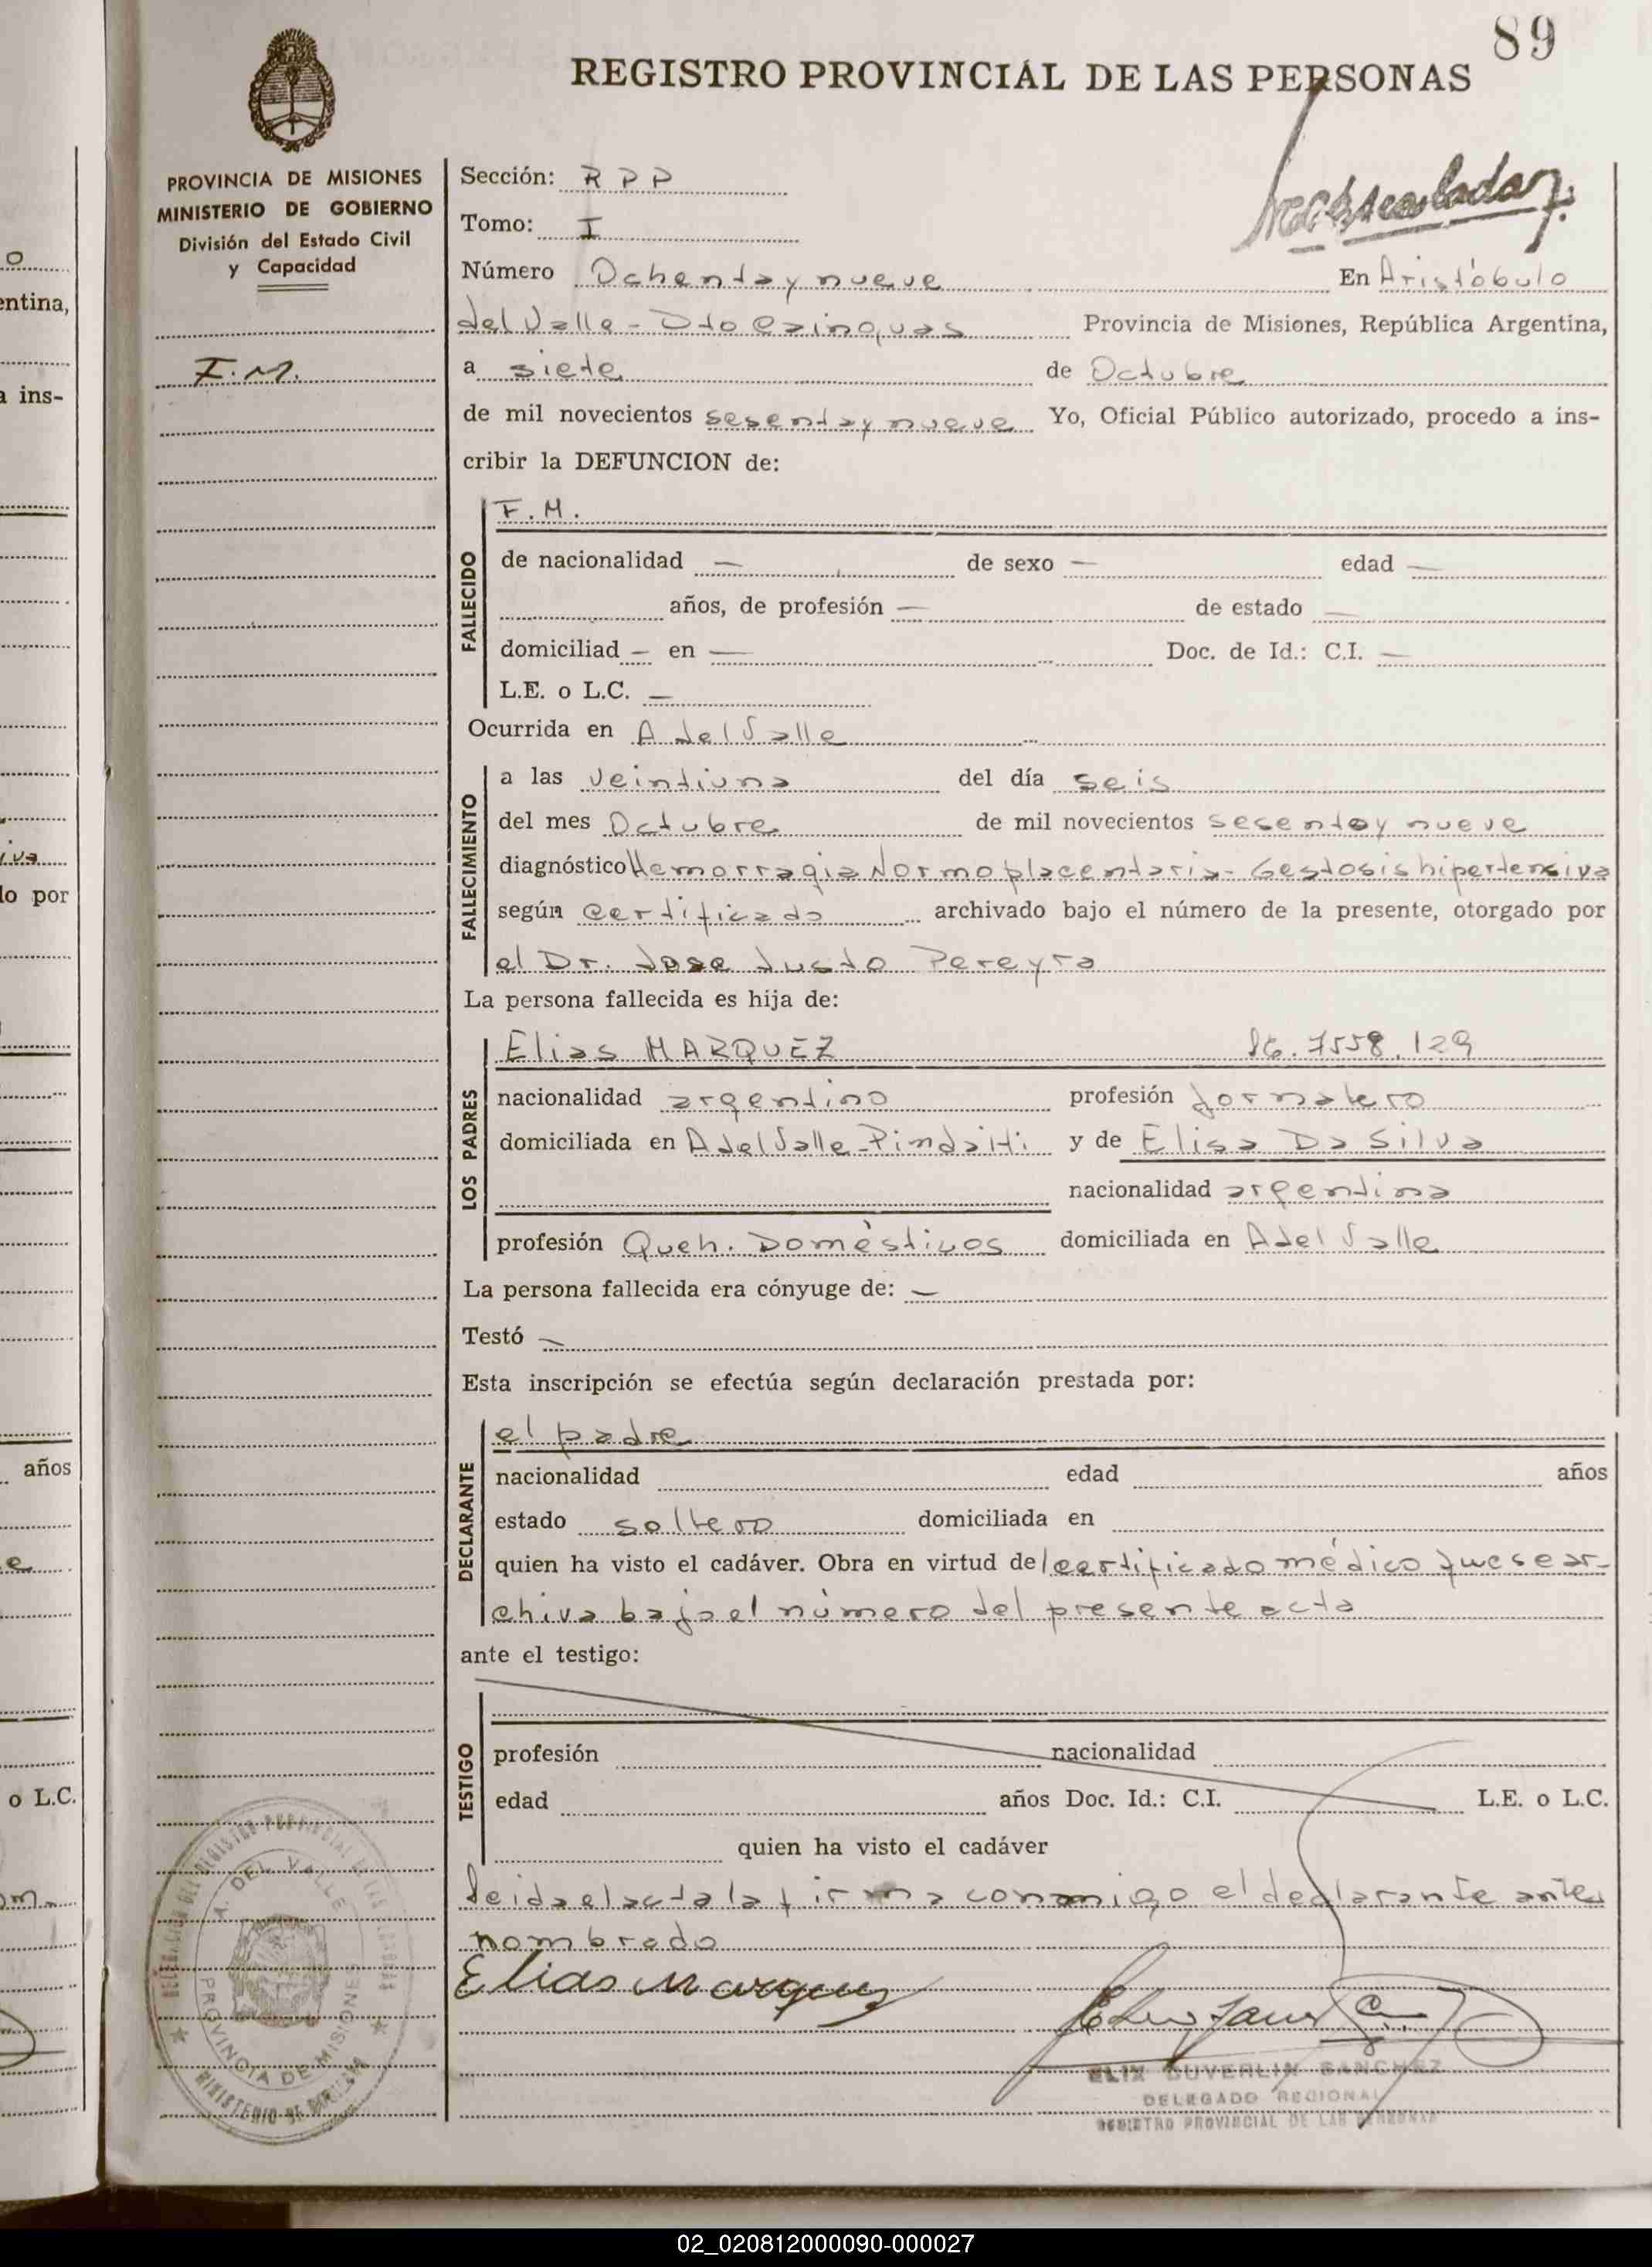 89
REGISTRO PROVINCIAL DE LAS PERSONAS
PROVINCIA DE MISIONES
MINISTERIO DE GOBIERNO
División del Estado Civil
y Capacidad
F.M.
Sección: R P P
Tomo: I
Número Ochenta y nueve En Aristóbulo
del Valle - Dto Cainguas Provincia de Misiones, República Argentina,
a siete de Octubre
de mil novecientos sesenta y nueve Yo, Oficial Público autorizado, procedo a ins-
cribir la DEFUNCION de:
FALLECIDO
F. M.
de nacionalidad — de sexo — edad —
años, de profesión — de estado —
domiciliad — en — Doc. de Id.: C.I. —
L.E. o L.C. —
Ocurrida en A del Valle
FALLECIMIENTO
a las veintiuna del día seis
del mes Octubre de mil novecientos sesenta y nueve
diagnóstico Hemorragia Normoplacentaria - Gestosis hipertensiva
según certificado archivado bajo el número de la presente, otorgado por
el Dr. Jose Justo Pereyra
La persona fallecida es hija de:
LOS PADRES
Elias MARQUEZ
nacionalidad argentino profesión Jornalero
domiciliada en A del Valle - Pindaiti y de Elisa Da Silva
nacionalidad argentina
profesión Queh. Domésticos domiciliada en A del Valle
La persona fallecida era cónyuge de: —
Testó —
Esta inscripción se efectúa según declaración prestada por:
DECLARANTE
el padre
nacionalidad edad años
estado soltero domiciliada en
quien ha visto el cadáver. Obra en virtud del certificado médico que se ar-
chiva bajo el número del presente acta
ante el testigo:
TESTIGO
profesión nacionalidad
edad años Doc. Id.: C.I. L.E. o L.C.
quien ha visto el cadáver
leida el acta la firma conmigo el declarante ante
nombrado
Elias Marquez
ELIX DUVERLIN SANCHEZ
DELEGADO REGIONAL
REGISTRO PROVINCIAL DE LAS PERSONAS
A. DEL VALLE
PROVINCIA DE MISIONES
o
entina,
a ins-
iva
lo por
años
e
o L.C.
om.
02_020812000090-000027